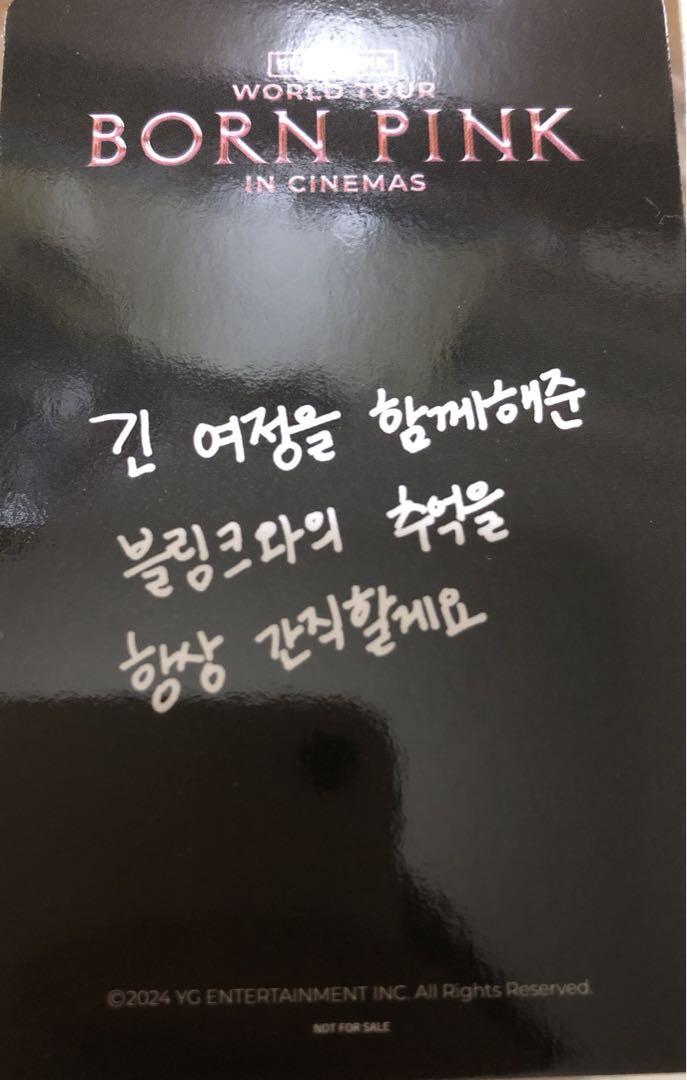 WORLD TOUR
BORN PINK
IN CINEMAS
긴 여정을 함께해준
블링크와의 추억을
항상 간직할게요
©2024 YG ENTERTAINMENT INC. All Rights Reserved.
NOT FOR SALE